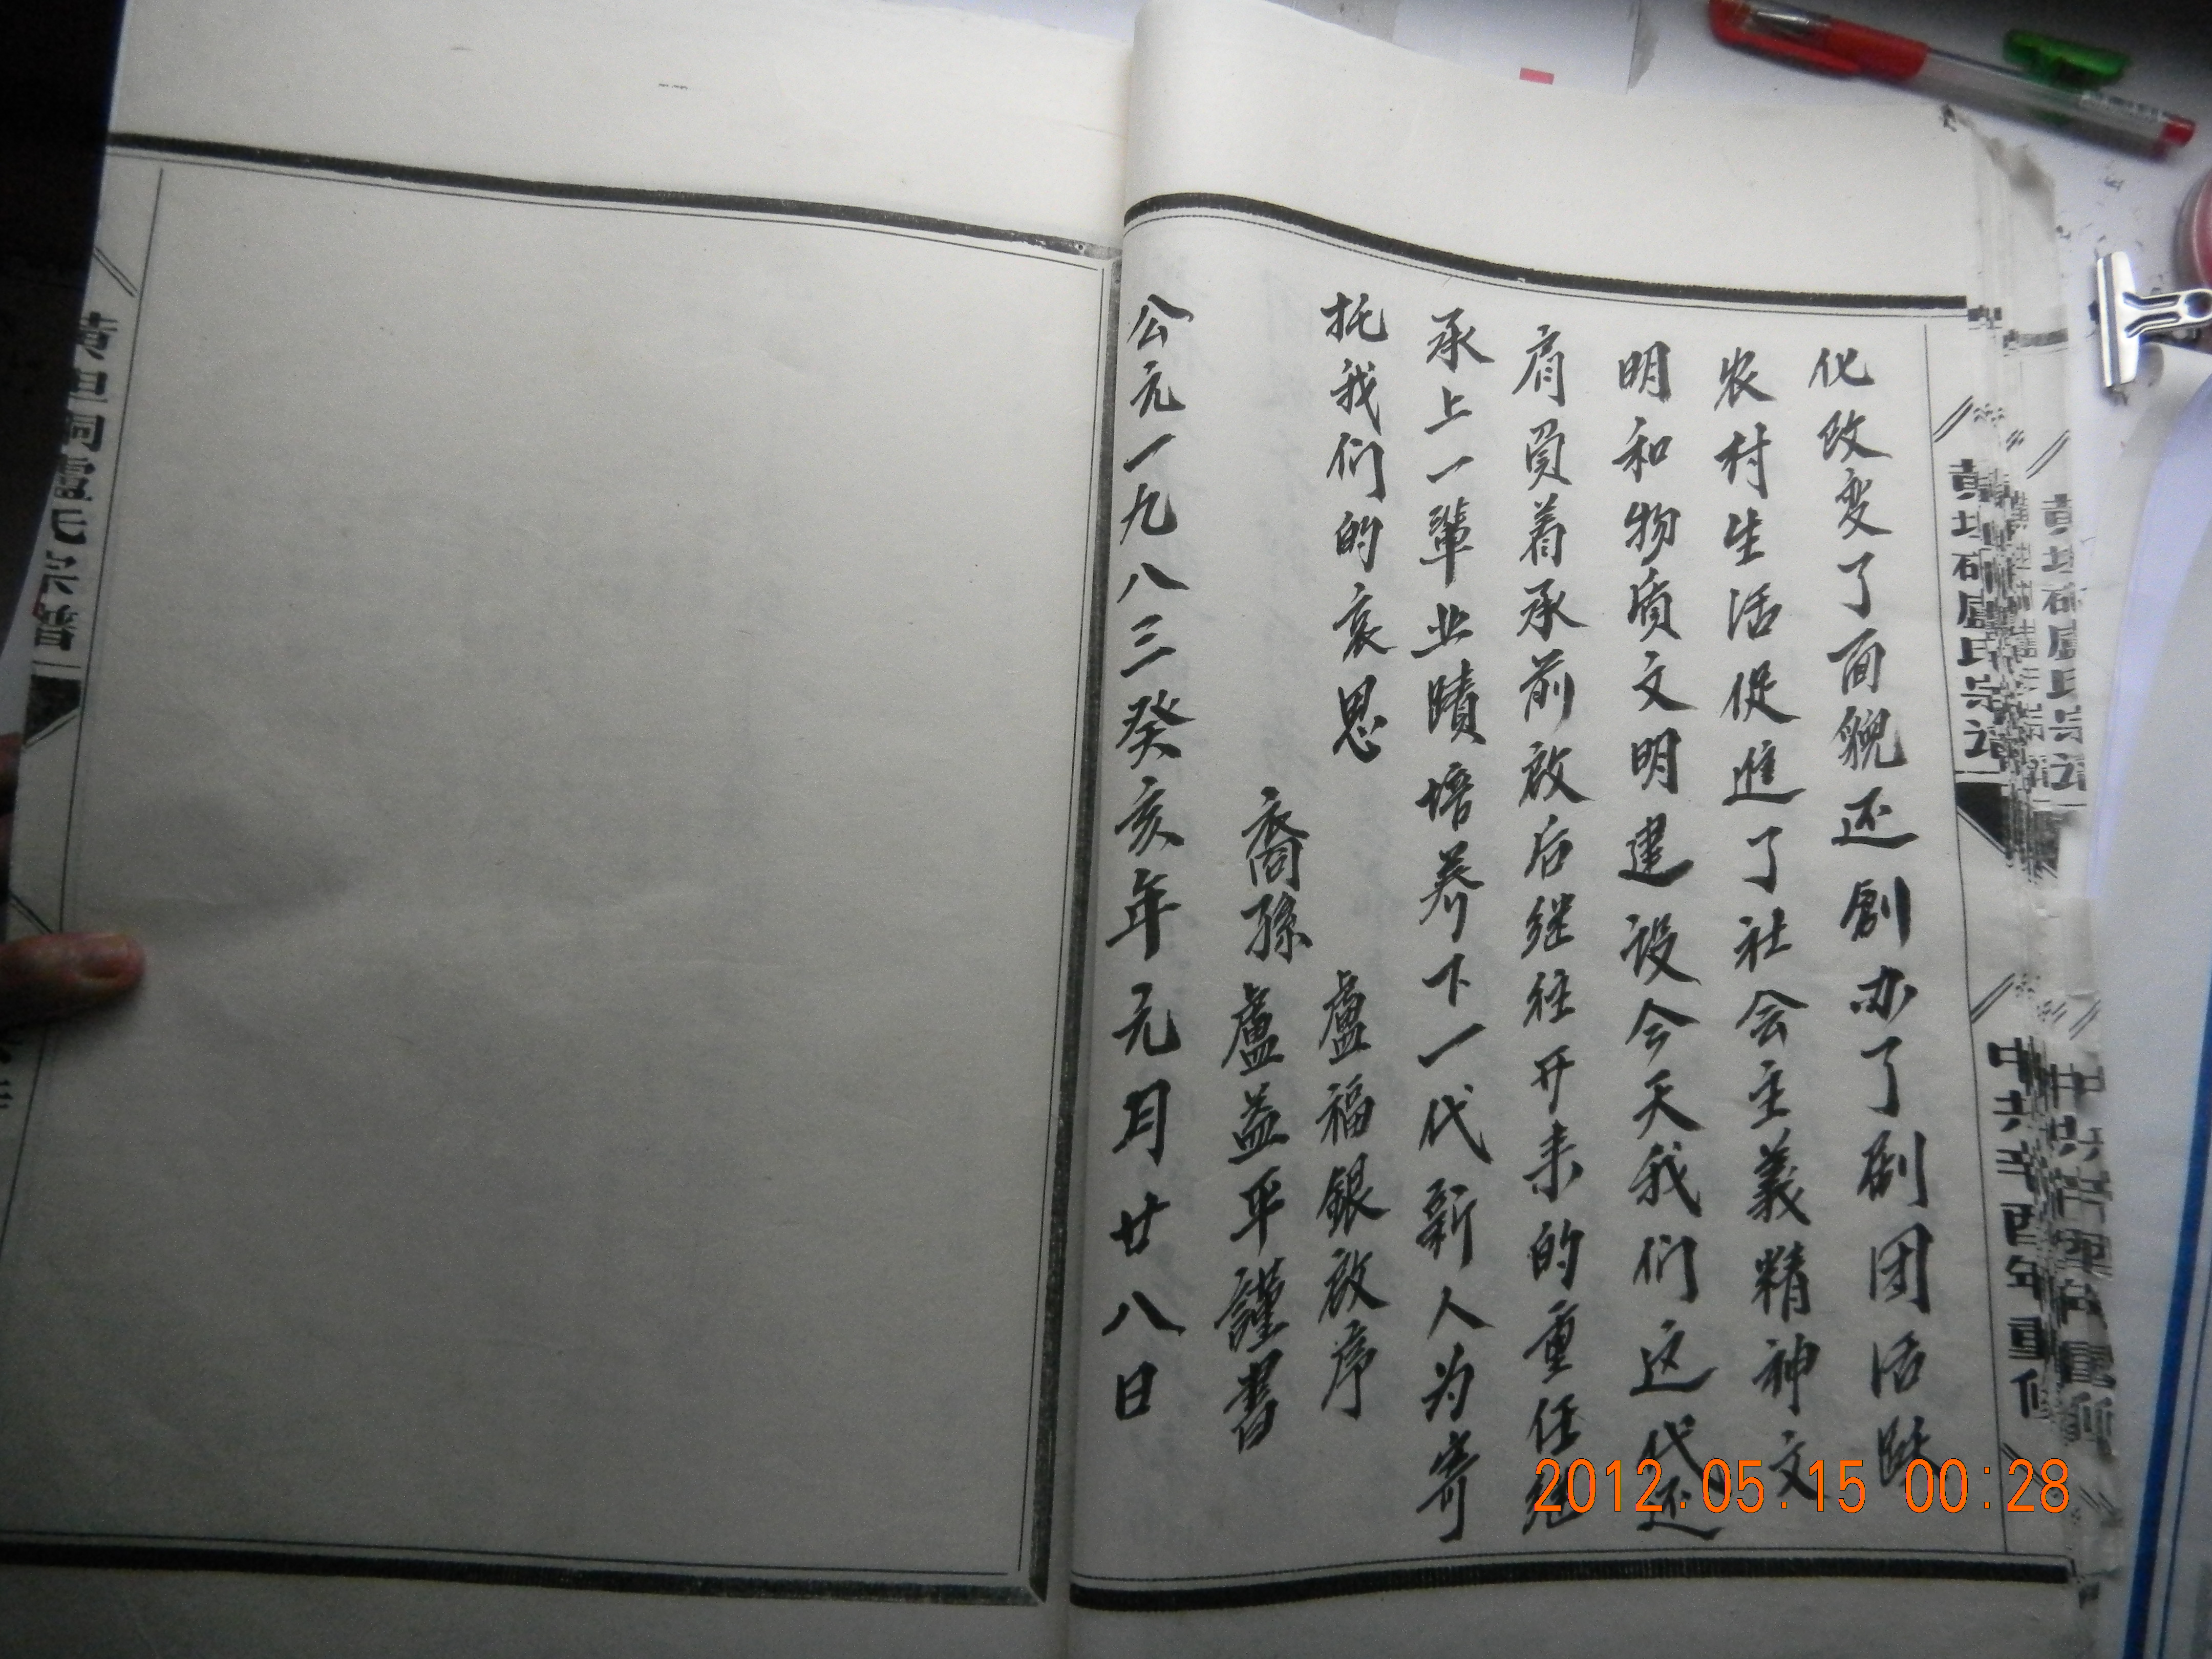 化改变了面貌还創办了剧团活跃
农村生活促進了社会主義精神文
明和物质文明建设今天我们这代还
肩負着承前啟后继往开来的重任继
承上一輩业蹟培养下一代新人为寄
托我们的哀思
盧福銀敘序
裔孫 盧益平謹書
公元一九八三癸亥年元月廿八日
盧氏宗譜
中共辛酉年重修
2012.05.15 00:28